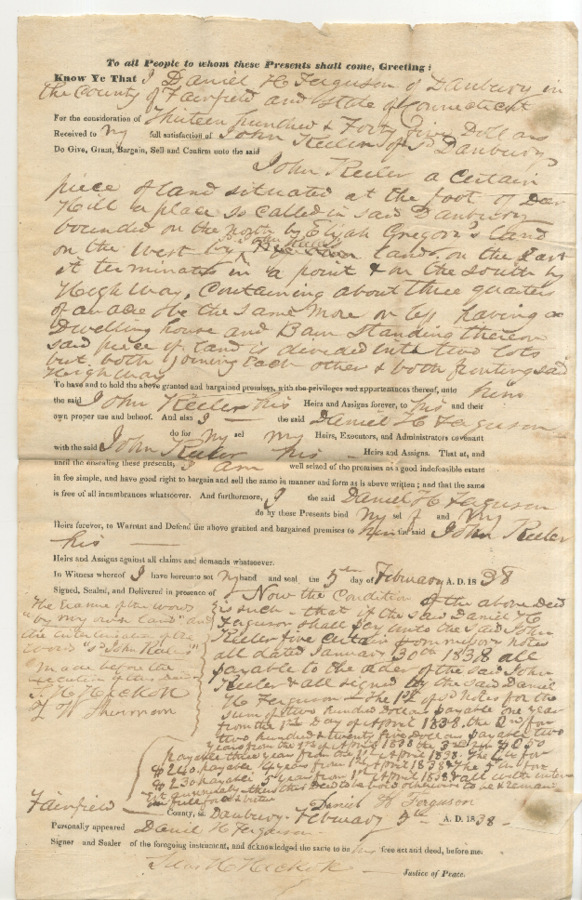 To all People to whom these Presents shall come, Greeting:
Know Ye That I Daniel H Ferguson of Danbury in
the County of Fairfield and State of Connecticut
For the consideration of Thirteen hundred & Forty Five Dollars
Received to my full satisfaction of John Keeler of Sd Danbury
Do Give, Grant, Bargain, Sell and Confirm unto the said
John Keeler a certain
piece of land situated at the foot of
Hill a place so called in said Danbury
bounded on the north by Elijah Gregory's land
on the West by land on the East
it terminates in a point & on the South by
High Way, Containing about three quarters
of an acre be the same more or less having a
Dwelling house and Barn Standing thereon
said piece of land is divided into two lots
but both joining each other & both fronting said
High Way
To have and to hold the above granted and bargained premises, with the privileges and appurtenances thereof, unto him
the said John Keeler his Heirs and Assigns forever, to his and their
own proper use and behoof. And also I the said Daniel H Ferguson
do for my sel my Heirs, Executors, and Administrators covenant
with the said John Keeler his Heirs and Assigns. That at, and
until the ensealing these presents, I am well seized of the premises as a good indefeasible estate
in fee simple, and have good right to bargain and sell the same in manner and form as is above written; and that the same
is free of all incumbrances whatsoever. And furthermore, I the said Daniel H Ferguson
do by these Presents bind my sel f and my
Heirs forever, to Warrant and Defend the above granted and bargained premises to him the said John Keeler
his
Heirs and Assigns against all claims and demands whatsoever.
In Witness whereof I have hereunto set my hand and seal the 5th day of February A. D. 1838
Signed, Sealed, and Delivered in presence of
Now the Condition of the above Deed
is such that if the said Daniel H
Ferguson shall pay unto the said John
Keeler five certain promissory notes
all dated January 30th 1838 all
payable to the order of the said John
Keeler & all signed by the said Daniel
H Ferguson The 1st of sd notes for the
sum of two hundred Dolls payable one year
from the 1st Day of April 1838 the 2nd for
two hundred & twenty five dollars payable two
years from the 1st of April 1838 the 3rd
payable three years from the 1st April 1838 The 4th for
$240 payable 4 years from 1st April 1838 The 5th for
$230 payable 5 years from 1st April 1838 all with inter-
est annually then this Deed to be void otherwise to be & remain
in full force & virtue
The erasure of the words
"by my own land" and
the interlineation of the
words
made before the
execution of this
H Hickok
Sherman
Daniel H Ferguson
Fairfield County, Danbury February 5th A. D. 1838
Personally appeared Daniel H Ferguson
Signer and Sealer of the foregoing instrument, and acknowledged the same to be his free act and deed, before me.
H Hickok Justice of Peace.